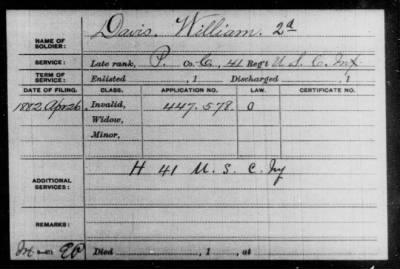 NAME OF SOLDIER: Davis, William. 2d
SERVICE: Late rank, P. Co. C, 41 Reg't U. S. C. Inf.
TERM OF SERVICE: Enlisted , 1 Discharged , 1
DATE OF FILING. CLASS. APPLICATION NO. LAW. CERTIFICATE NO.
1882 Apr 26 Invalid, 447.578. O
Widow,
Minor,
ADDITIONAL SERVICES: H 41 U. S. C. Iny
REMARKS:
Died , 1 , at